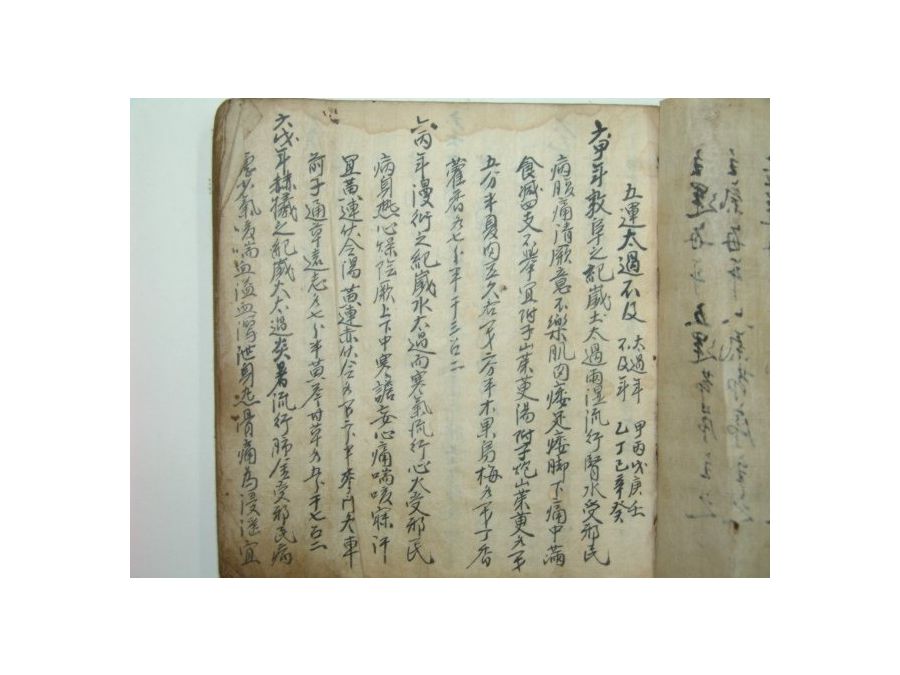 五運太過不及 太過年 甲丙戊庚壬
不及年 乙丁己辛癸
六甲年敦阜之紀歲土太過雨湿流行腎水受邪民
病腹痛清厥意不樂肌肉痿足痿脚下痛中滿
食减四支不擧宜附子山茱萸湯附子炮山茱萸各一戔
五分半夏肉豆久各一戔二分半木果烏梅各一戔丁香
藿香各七分半干三召二
六丙年漫衍之紀歲水太過而寒氣流行心火受邪民
病身熱心燥陰厥上下中寒譫妄心痛喘咳寐汗
宜黃連伏令湯 黃連赤伏令各一戔二分半麥門冬車
前子通草遠志各七分半黃芩甘草各五分干七召二
六戊年赫曦之紀歲火太過炎暑流行肺金受邪民病
瘧少氣咳喘血溢血瀉泄身熱骨痛為浸淫宜